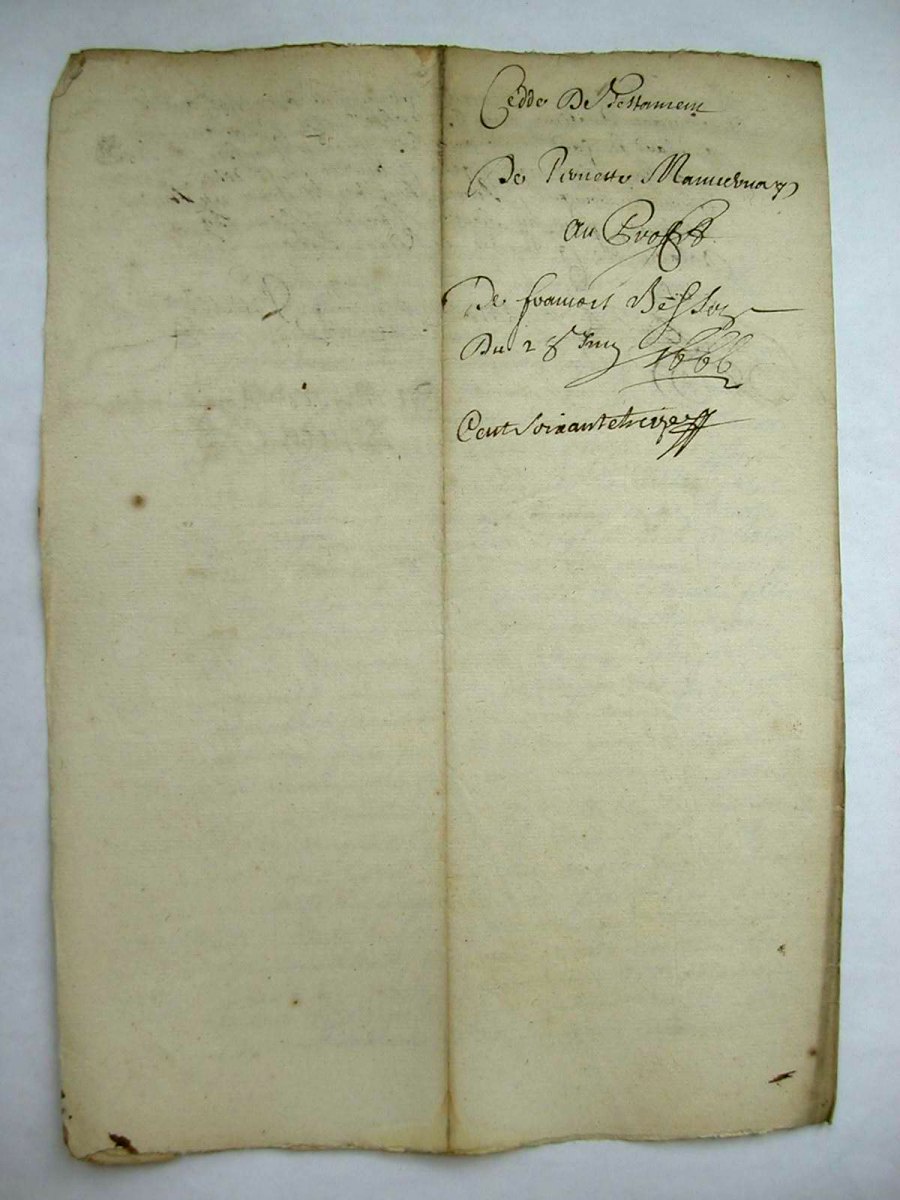 Cedde De Testament
De Pernette Manuernay
au Proffit
De francois Besson
Du 28 Juin 1666
Cent soixante treize